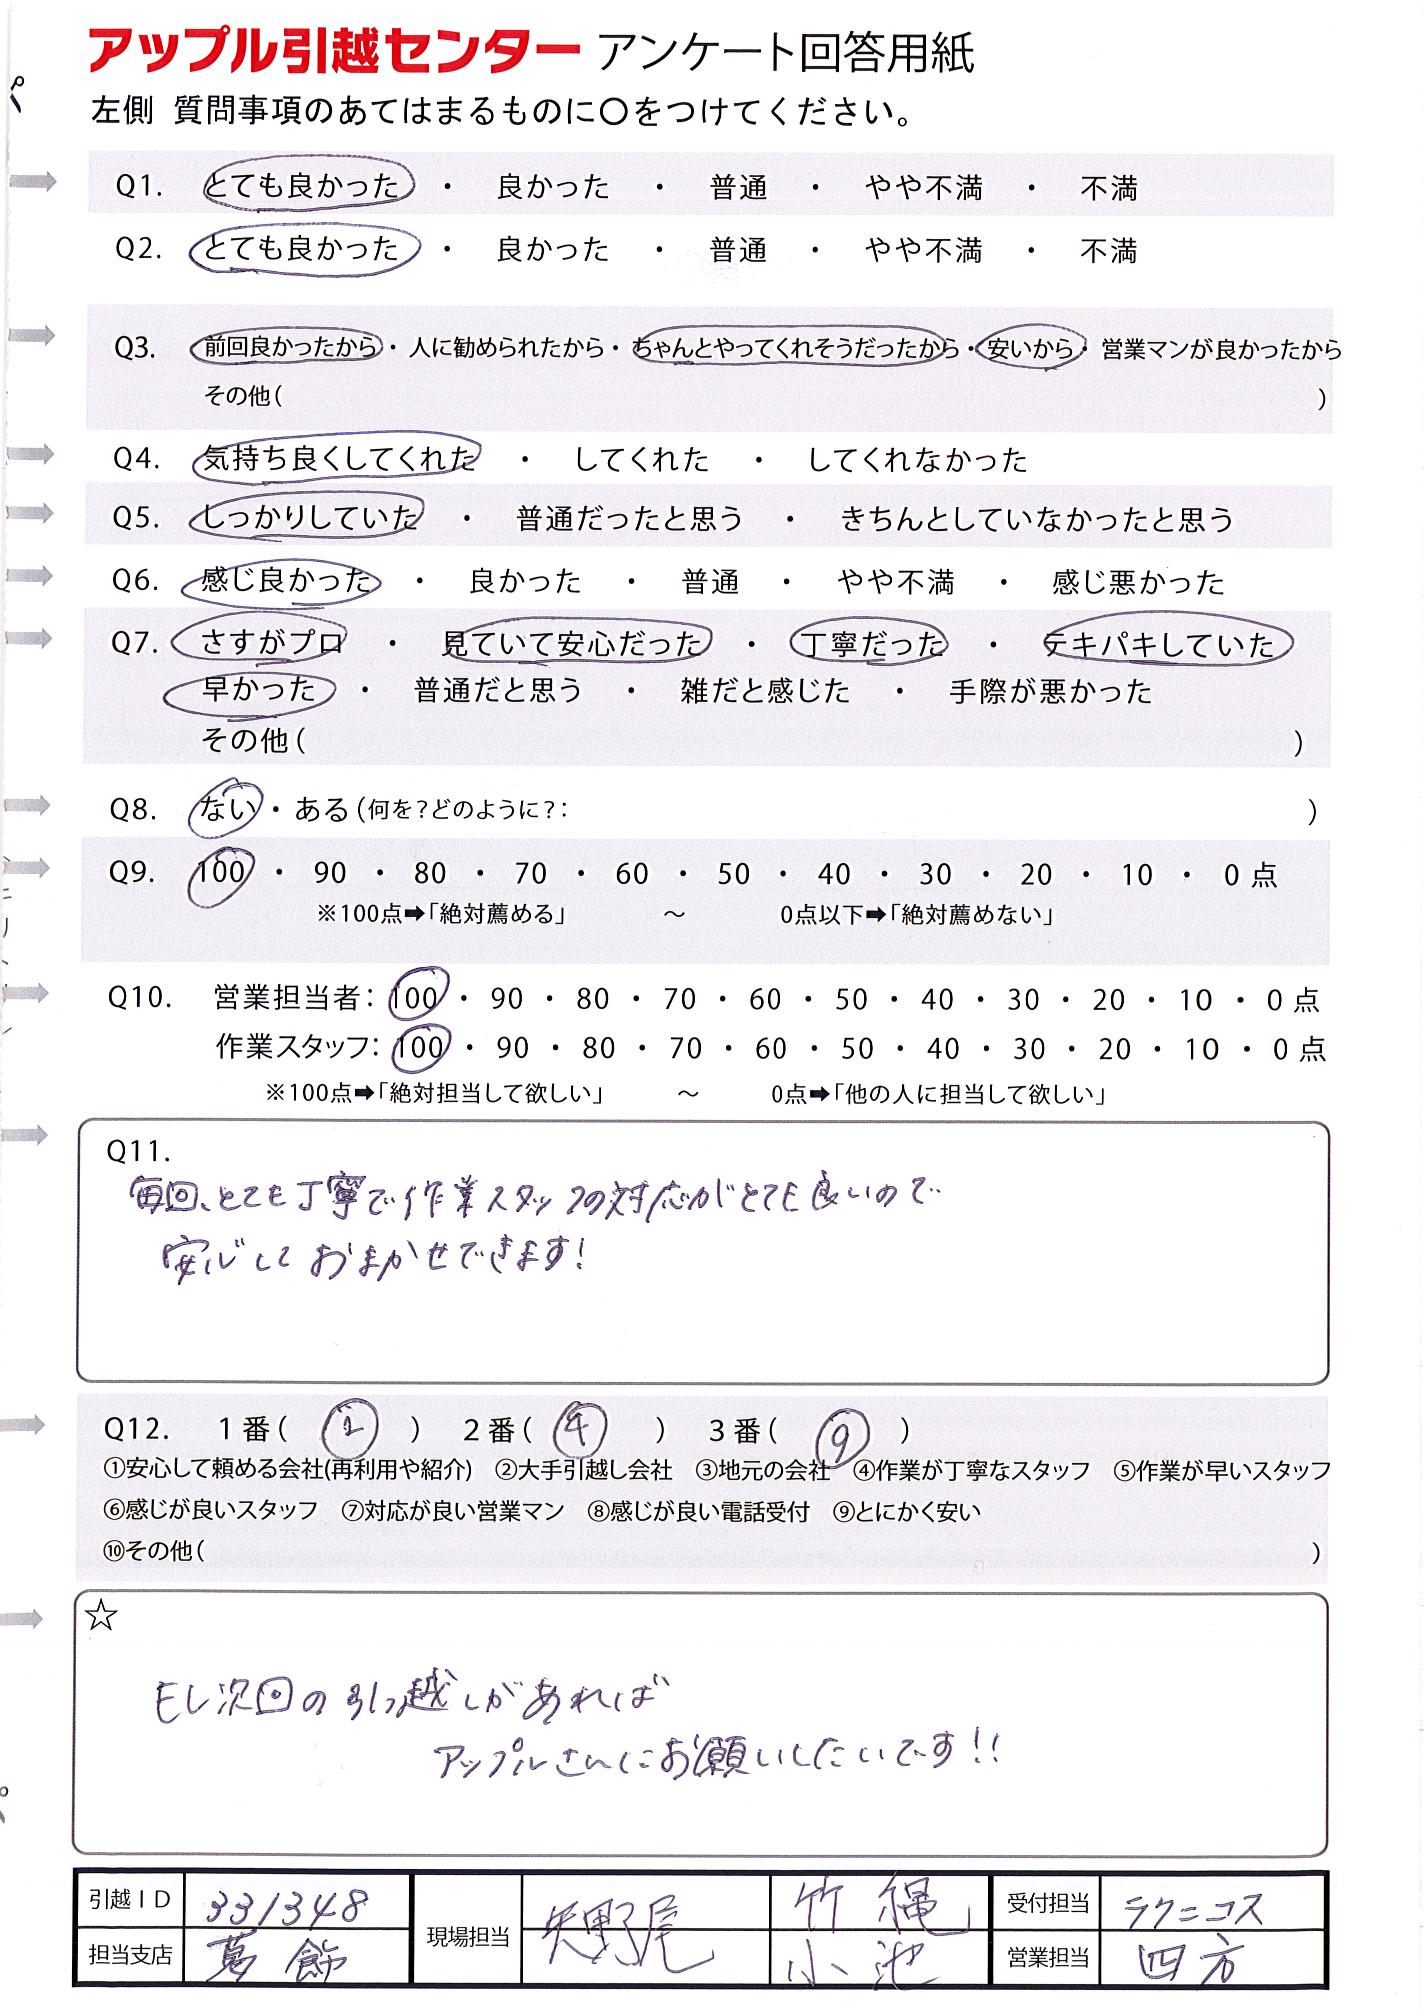 アップル引越センター アンケート回答用紙
左側 質問事項のあてはまるものに〇をつけてください。
Q1. とても良かった ・ 良かった ・ 普通 ・ やや不満 ・ 不満
Q2. とても良かった ・ 良かった ・ 普通 ・ やや不満 ・ 不満
Q3. 前回良かったから・人に勧められたから・ちゃんとやってくれそうだったから・安いから・営業マンが良かったから
その他( )
Q4. 気持ち良くしてくれた ・ してくれた ・ してくれなかった
Q5. しっかりしていた ・ 普通だったと思う ・ きちんとしていなかったと思う
Q6. 感じ良かった ・ 良かった ・ 普通 ・ やや不満 ・ 感じ悪かった
Q7. さすがプロ ・ 見ていて安心だった ・ 丁寧だった ・ テキパキしていた
早かった ・ 普通だと思う ・ 雑だと感じた ・ 手際が悪かった
その他( )
Q8. ない・ある(何を?どのように?: )
Q9. 100 ・ 90 ・ 80 ・ 70 ・ 60 ・ 50 ・ 40 ・ 30 ・ 20 ・ 10 ・ 0 点
※100点➡「絶対薦める」 〜 0点以下➡「絶対薦めない」
Q10. 営業担当者: 100 ・ 90 ・ 80 ・ 70 ・ 60 ・ 50 ・ 40 ・ 30 ・ 20 ・ 10 ・ 0 点
作業スタッフ: 100 ・ 90 ・ 80 ・ 70 ・ 60 ・ 50 ・ 40 ・ 30 ・ 20 ・ 10 ・ 0 点
※100点➡「絶対担当して欲しい」 〜 0点➡「他の人に担当して欲しい」
Q11.
毎回、とても丁寧で作業スタッフの対応がとても良いので
安心しておまかせできます!
Q12. 1番( ) 2番( ④ ) 3番( ⑨ )
①安心して頼める会社(再利用や紹介) ②大手引越し会社 ③地元の会社 ④作業が丁寧なスタッフ ⑤作業が早いスタッフ
⑥感じが良いスタッフ ⑦対応が良い営業マン ⑧感じが良い電話受付 ⑨とにかく安い
⑩その他( )
☆
もし次回の引っ越しがあれば
アップルさんにお願いしたいです!!
引越ID 331348 現場担当 矢野尾 竹縄 受付担当 テクニコス
担当支店 葛飾 小池 営業担当 四方